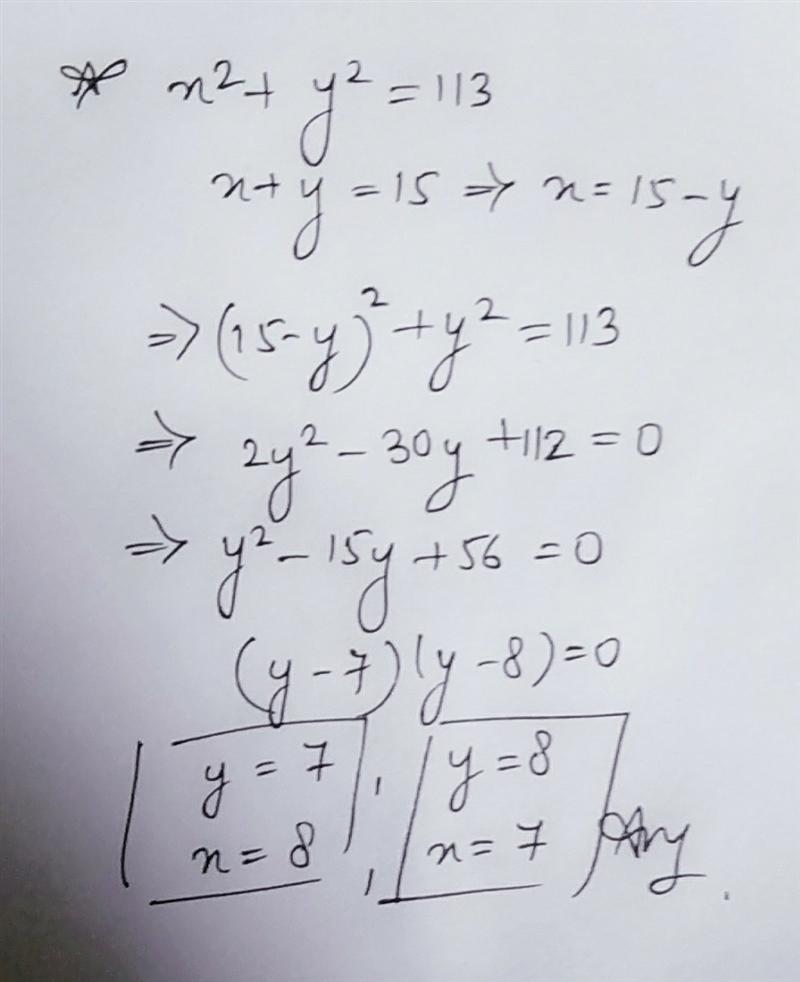 * x² + y² = 113
x + y = 15 ⇒ x = 15 - y
⇒ (15-y)² + y² = 113
⇒ 2y² - 30y + 112 = 0
⇒ y² - 15y + 56 = 0
(y-7)(y-8)=0
y = 7 ; y = 8
x = 8 , x = 7 Ans